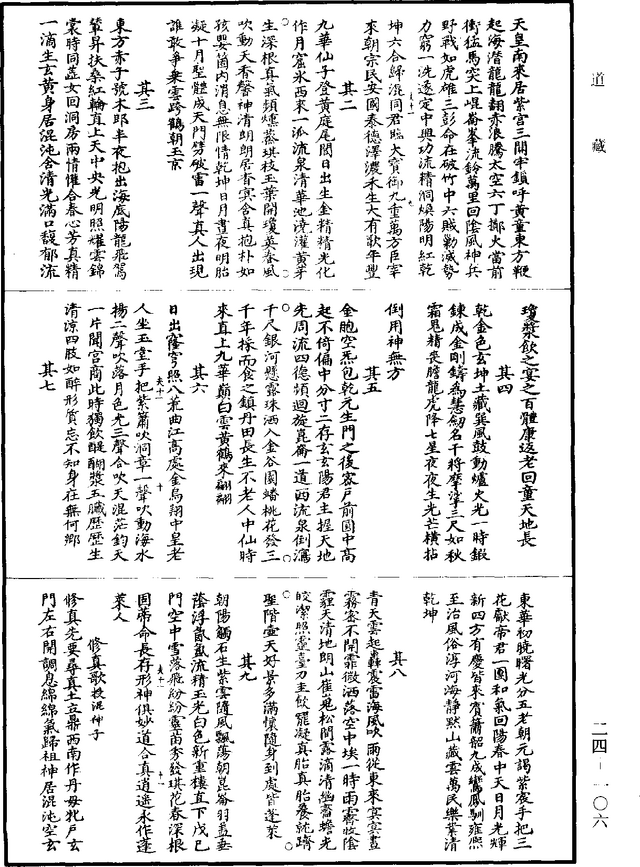 道藏
天皇南來居紫宮三關牢鎖呼黃童東方鞭
起海潛龍龍翻赤浪騰太空六丁擲火當前
衝猛馬突上崑崙峯流鈴萬里回陰風神兵
野戰如虎雄三彭命在破竹中六賊勦滅勢
力窮一洗遂定中興功流精洞煥陽明紅乾
坤六合歸混同君臨大寶御九重萬方臣宰
來朝宗民安國泰德澤濃禾生大有歌年豐
其二
九華仙子登黃庭尾閭日出生金精精光化
作月窟氷西來一泒流泉清華池澆灌黃芽
生深根真氣頻燻蒸琪枝玉葉開瓊英春風
吹動天香馨神清朗朗居杳冥含真抱朴如
孩嬰箇內渭息無限情乾坤日月晝夜明胎
凝十月聖體成天門劈破雷一聲真人出現
誰敢爭乘雲跨鶴朝玉京
其三
東方赤子號木郎半夜抱出海底陽龍飛鳥
轝昇扶桑紅輪直上天中央光明照耀雲錦
裳時同蓝女回洞房兩情懽合春心芳真精
一滴生玄黃身居混沌含清光滿口馥郁流
瓊漿飲之宴之百體康返老回童天地長
其四
乾金色玄坤土藏巽風鼓動爐火光一時鍛
鍊成金剛鑄為慧劒名干將摩挲三尺如秋
霜鬼精喪膽龍虎降七星夜夜生光芒橫拈
倒用神無方
其五
金胞空炁包乾元生門之後密戶前圓中高
起不倚偏中分寸二存玄玄陽君主握天地
先周流四億頻迴旋崑崙一道西流泉倒瀉
千尺銀河懸露珠洒入金谷園蟠桃花發三
千年採而食之鎮丹田長生不老人中仙時
來直上九華巔白雲黃鶴來翩翩
其六
日出窿穹照八荒曲江高處金烏翔中皇老
人坐玉堂手把紫簫吹洞章一聲吹動海水
揚二聲吹落月色光三聲合吹天混茫鈞天
一片閒宮商此時獨飲醍醐漿五臟歷歷生
清涼四肢如醉形質忘不知身在無何鄉
其七
東華初曉曙光分五老朝元謁紫宸手把三
花獻帝君一團和氣回陽春中天日月光輝
新四方有慶皆來賓簫韶九成鸞鳳馴雍熙
至治風俗淳河海靜默山藏雲萬民樂業清
乾坤
其八
青天雲起轟震雷海風吹雨從東來冥冥晝
霧密不開霏微洒落空中埃一時雨霽收陰
霾天清地朗山崔嵬松間露滴清幽齋蟾光
皎潔照靈臺刀圭飲罷凝真胎真胎養就躋
聖階壺天好景多滿懷隨身到處皆蓬萊
其九
朝陽鶴石生紫雲隨風飄蕩朝崑崙羽蓋垂
蔭浮氤氳流精玉光白色新重樓直下戊己
門空中雪落飛紛紛靈苗秀發琪花春深根
固蒂命長存形神俱妙道合真逍遥永作蓬
萊人
修真歌投混伸子
修真先要尋真土立鼎西南作丹母牝戶玄
門左右開調息綿綿氣歸祖神居混沌空玄
二四—一〇六